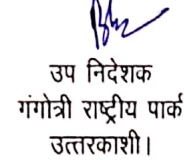 उप निदेशक
गंगोत्री राष्ट्रीय पार्क
उत्तरकाशी।